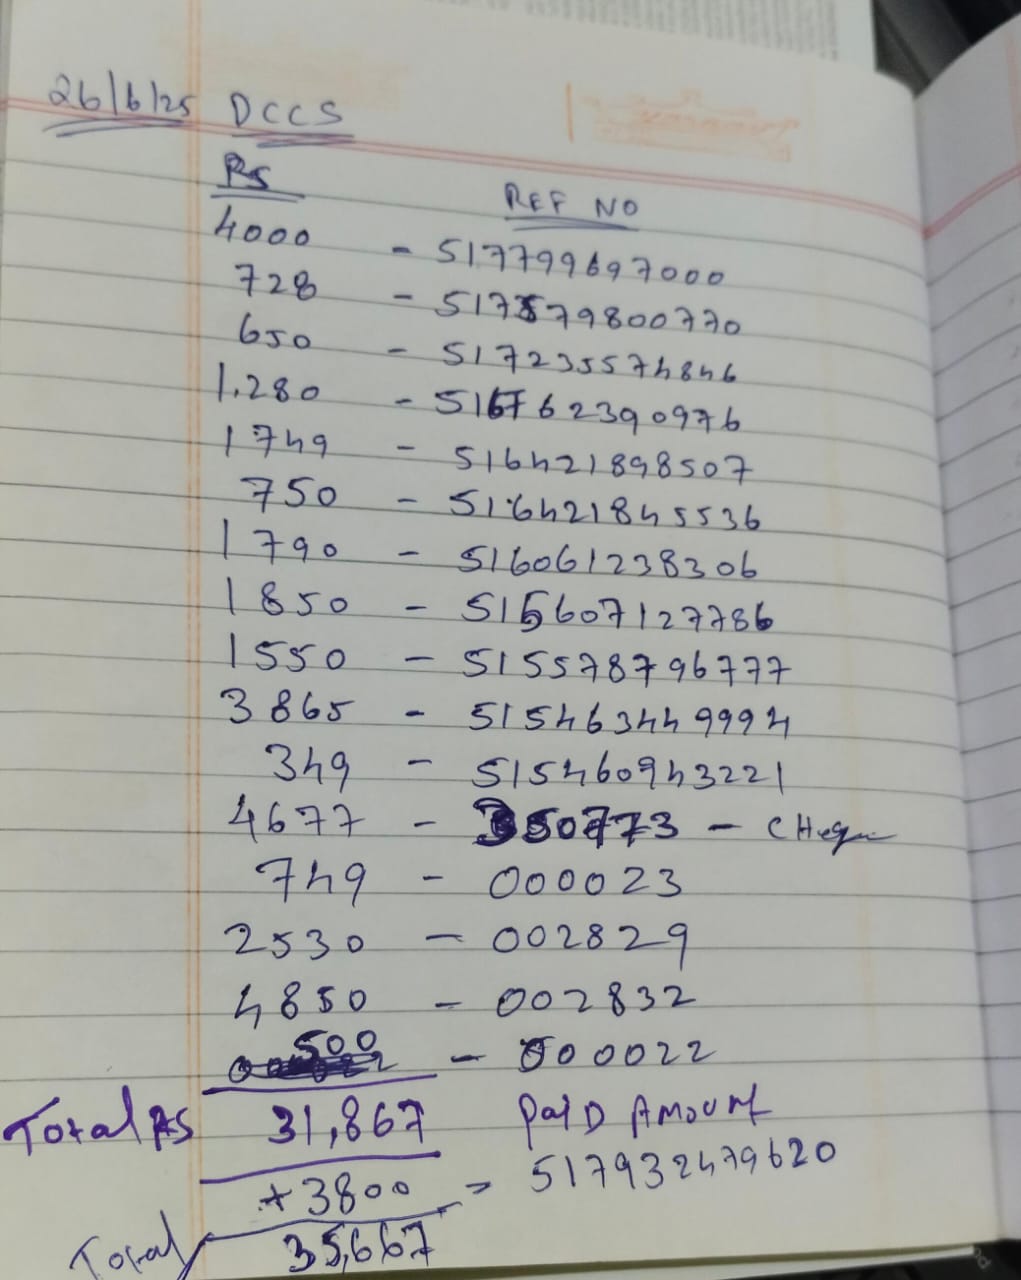 26/6/25 DCCS
Rs REF NO
4000 - 517799697000
728 - 517579800770
650 - 517235574846
1.280 - 516762390976
1749 - 516421898507
750 - 516421845536
1790 - 516061238306
1850 - 515607127786
1550 - 515578796777
3865 - 515463449994
349 - 515460943221
4677 - 350773 - CHeque
749 - 000023
2530 - 002829
4850 - 002832
500 - 000022
Total RS 31,867 PaiD Amount
+3800 = 517932479620
Total 35,667